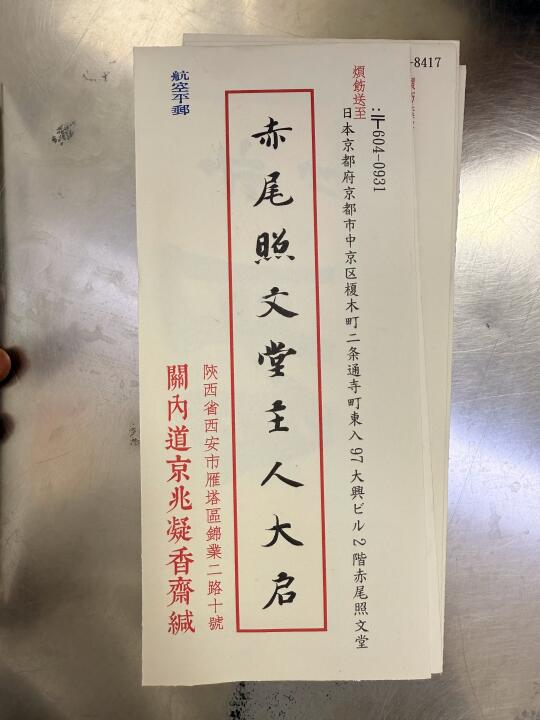 煩飭送至
：〒604-0931
日本京都府京都市中京区榎木町二条通寺町東入97大興ビル2階赤尾照文堂
赤尾照文堂主人大启
航空平郵
陝西省西安市雁塔區錦業二路十號
關內道京兆凝香齋緘
-8417